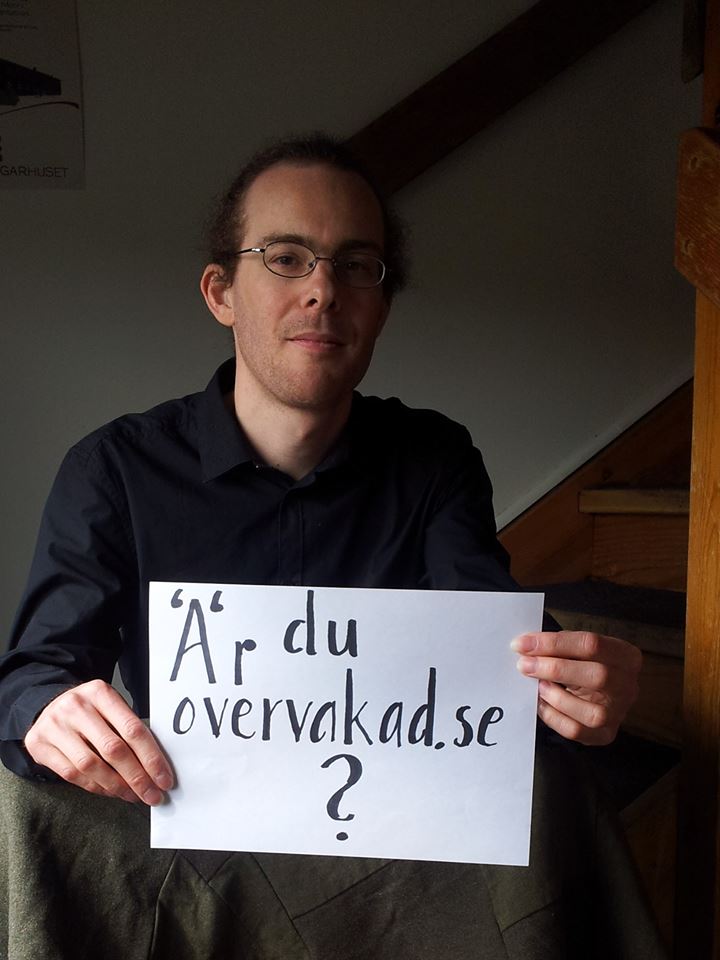 GARHUSET
"Ä"r du
overvakad.se
?